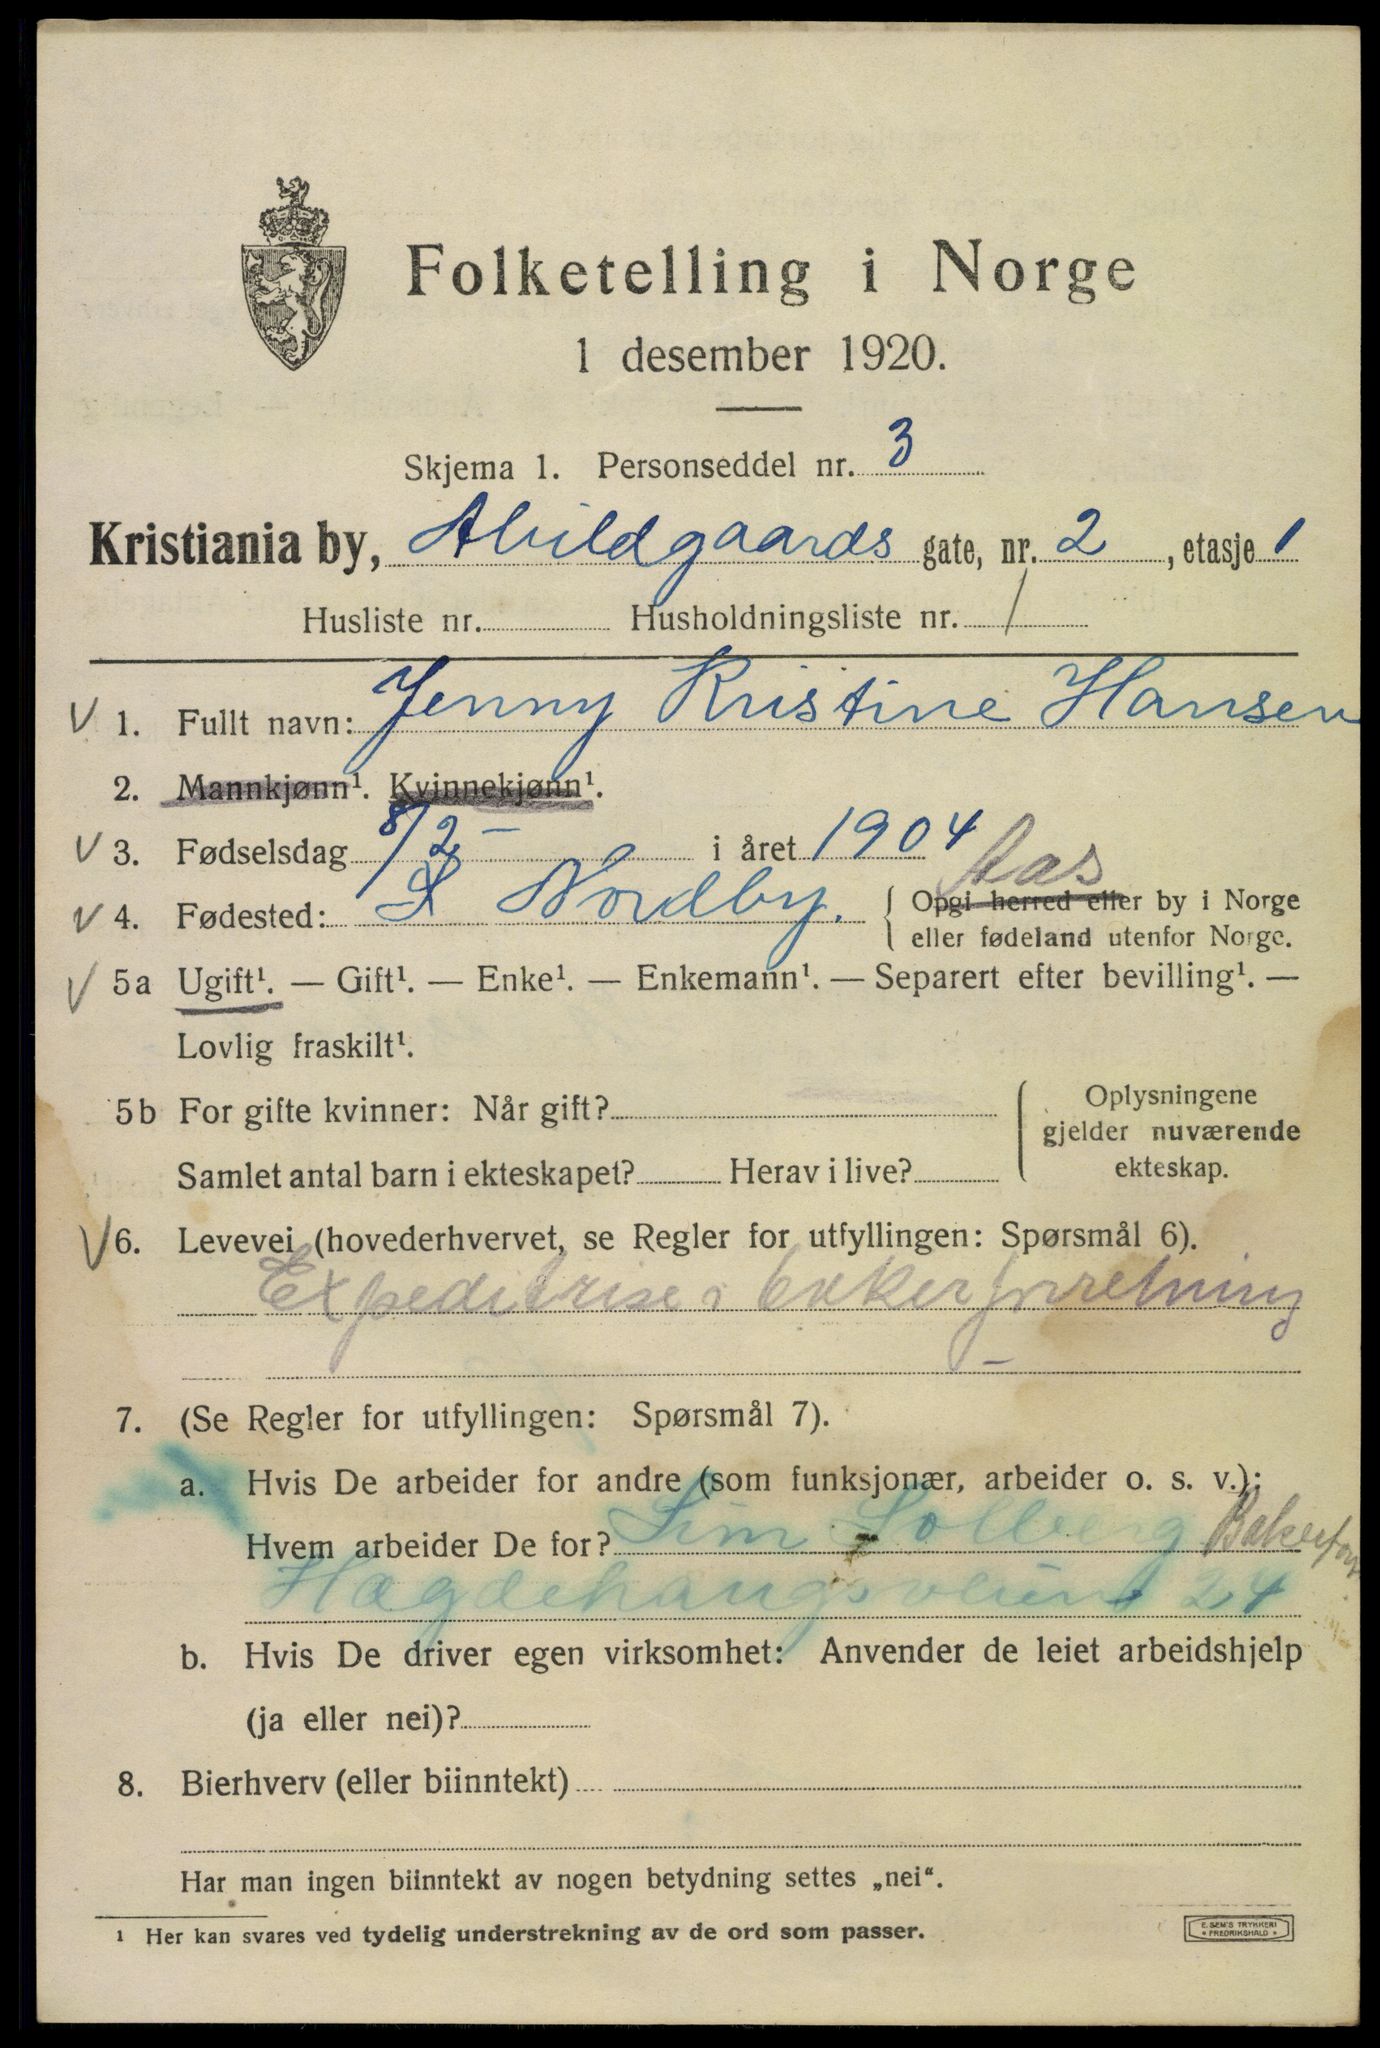 Folketelling i Norge
1 desember 1920.
Skjema 1. Personseddel nr. 3
Kristiania by, Abildgaards gate, nr. 2, etasje 1
Husliste nr. Husholdningsliste nr. 1
V 1. Fullt navn: Jenny Kristine Hansen
2. Mannkjønn¹. Kvinnekjønn¹.
V 3. Fødselsdag 8/2 - i året 1904
Aas
V 4. Fødested: Nordby. Opgi herred eller by i Norge
eller fødeland utenfor Norge.
V 5a Ugift¹. — Gift¹. — Enke¹. — Enkemann¹. — Separert efter bevilling¹. —
Lovlig fraskilt¹.
5b For gifte kvinner: Når gift? Oplysningene
gjelder nuværende
Samlet antal barn i ekteskapet? Herav i live? ekteskap.
V 6. Levevei (hovederhvervet, se Regler for utfyllingen: Spørsmål 6).
Expeditrise i bakerforretning
7. (Se Regler for utfyllingen: Spørsmål 7).
a. Hvis De arbeider for andre (som funksjonær, arbeider o. s. v.):
Hvem arbeider De for? Sim Solberg
Hægdehaugsveien 24
b. Hvis De driver egen virksomhet: Anvender de leiet arbeidshjelp
(ja eller nei)?
8. Bierhverv (eller biinntekt)
Har man ingen biinntekt av nogen betydning settes „nei“.
¹ Her kan svares ved tydelig understrekning av de ord som passer.
E. SEM'S TRYKKERI
* FREDRIKSHALD *